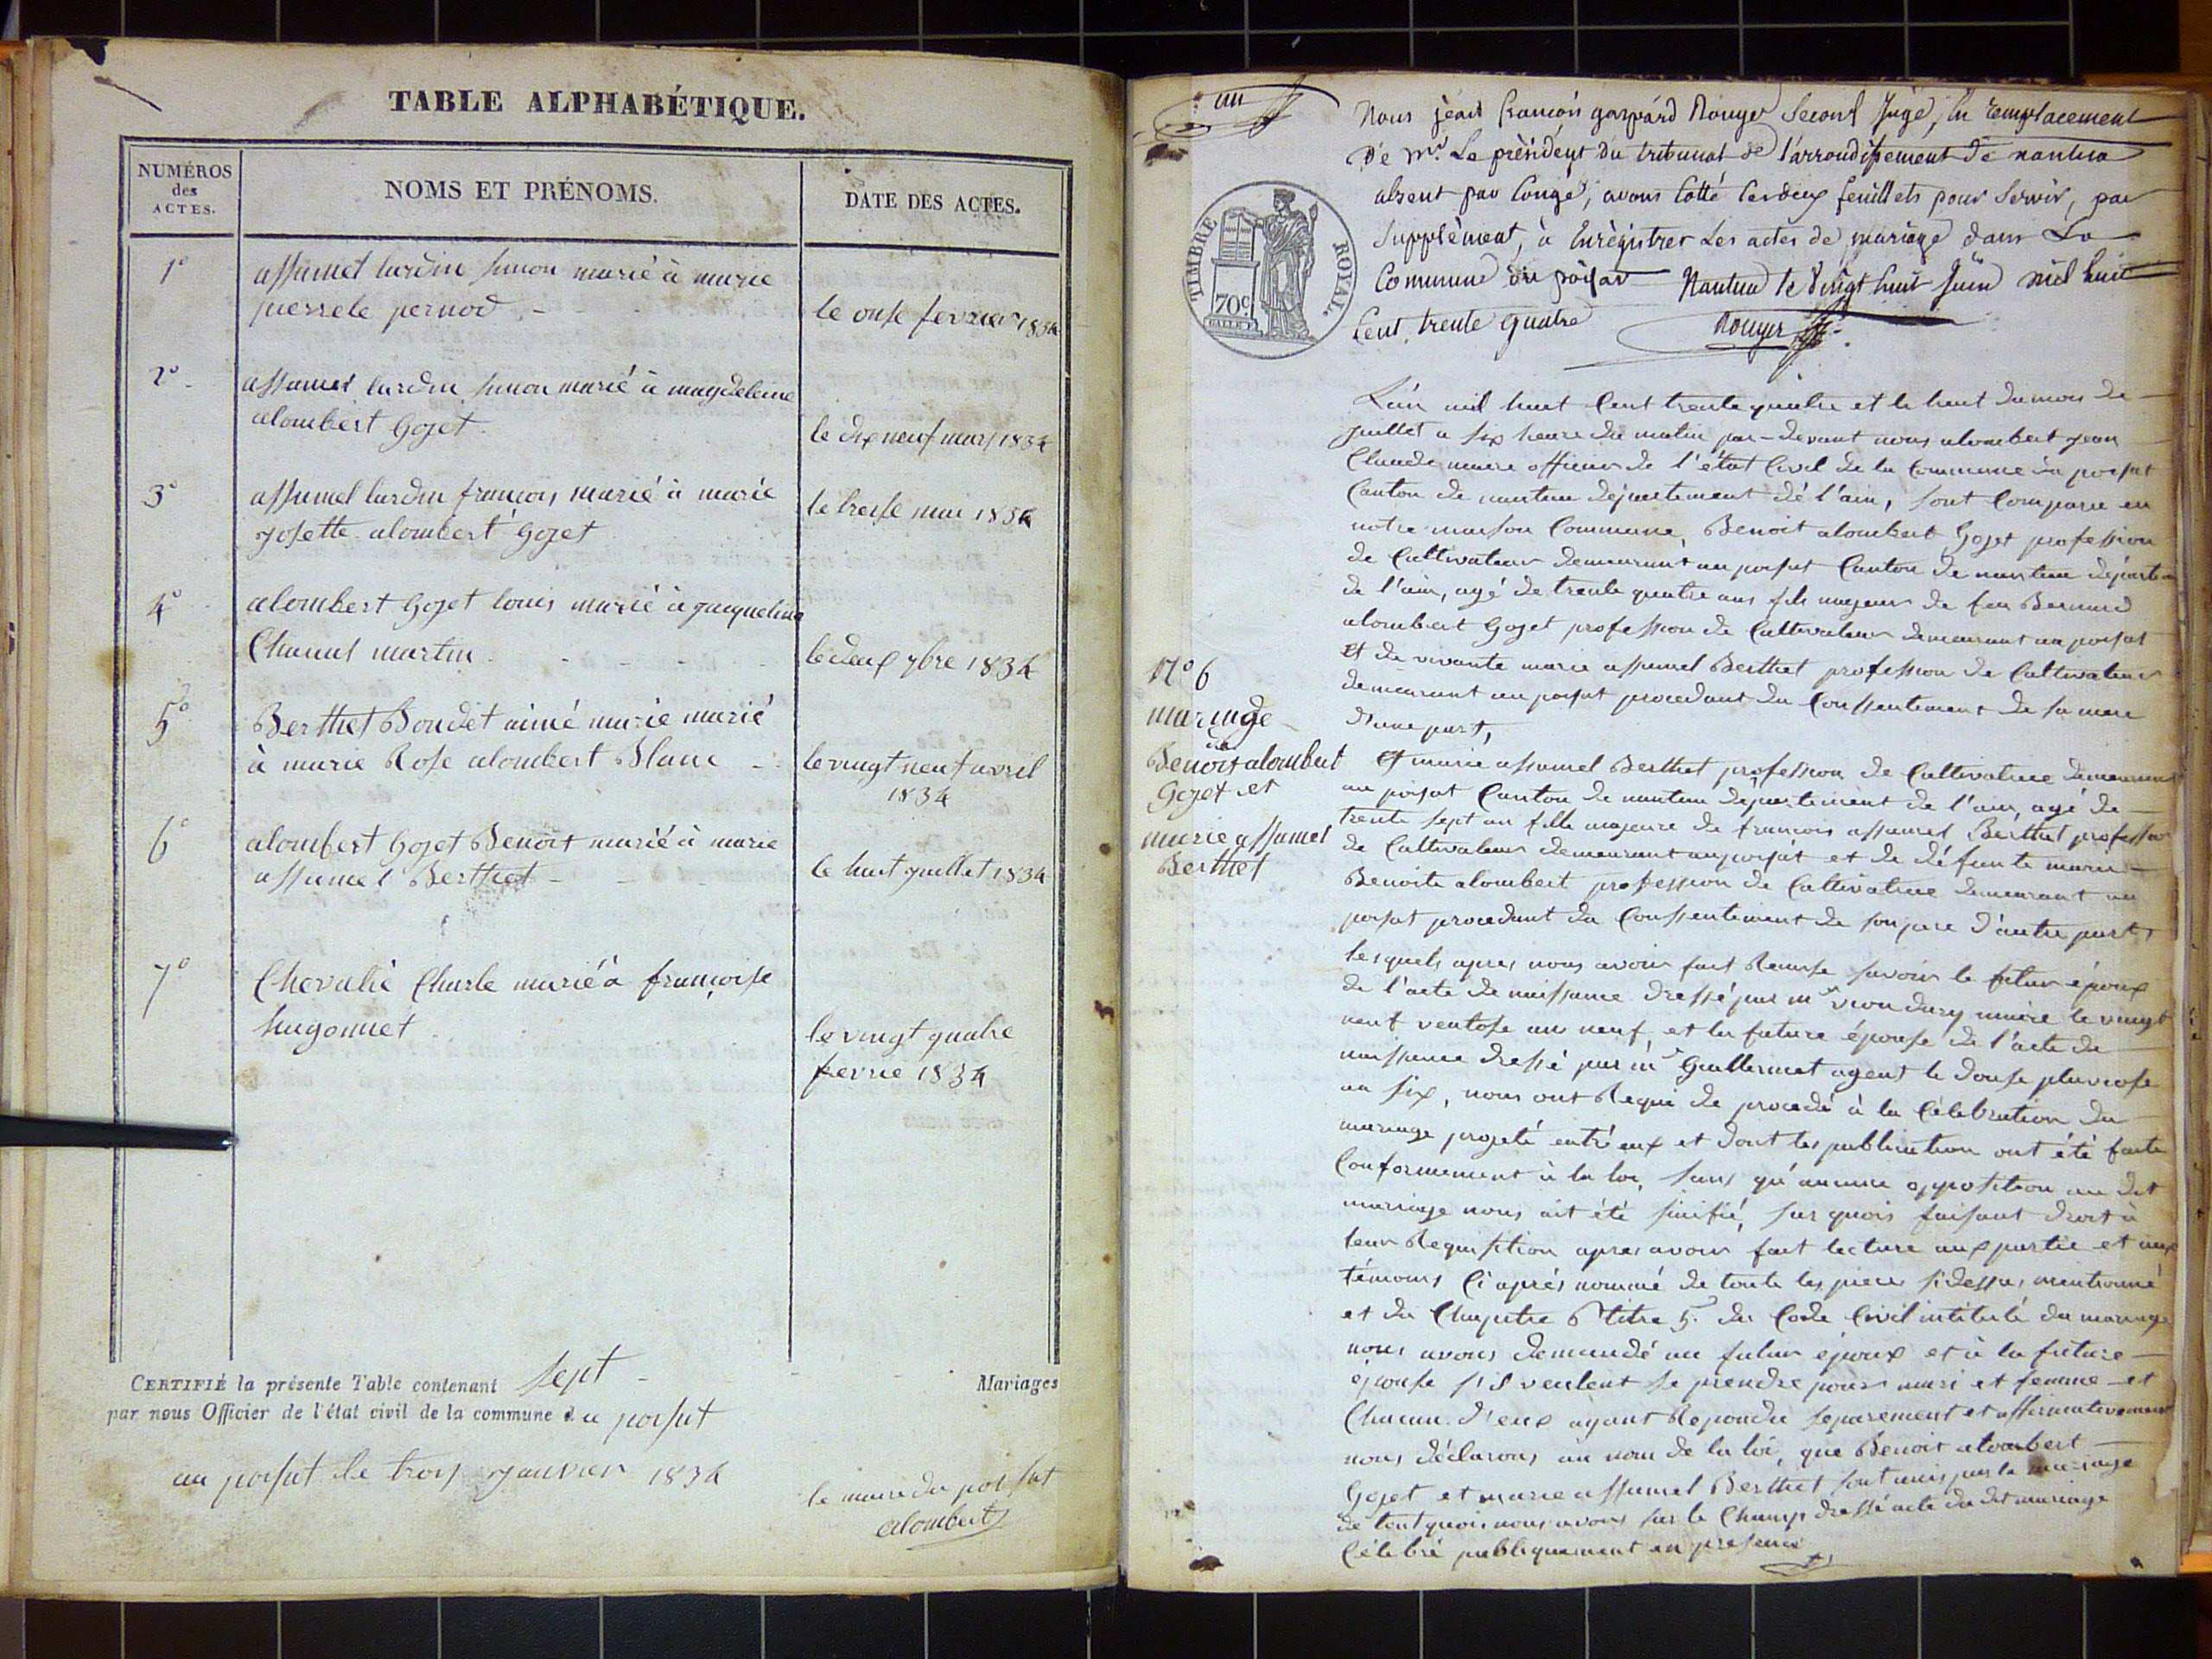 TABLE ALPHABÉTIQUE.
NUMÉROS
des
ACTES.
NOMS ET PRÉNOMS.
DATE DES ACTES.
1°
assumel lurdin simon marié à marie
pernod
le onse fevrier 1834
2°
assumel lurdin simon marié à magdeleine
alombert Gojet
le dix neuf mars 1834
3°
assumel lurdin françois marié à marie
josette alombert Gojet
le treise mai 1834
4°
alombert Gojet louis marié à jacqueline
Chanel martin
le deux 7bre 1834
5°
Berthet Boudet aimé marie marié
à marie Rose alombert Blanc
le vingt neuf avril
1834
6°
alombert Gojet Benoit marié à marie
assumel Berthet
le huit juillet 1834
7°
Chevalié Charle marié à françoise
hugonnet
le vingt quatre
fevrie 1834
CERTIFIÉ la présente Table contenant sept Mariages
par nous Officier de l'état civil de la commune du poisat
au poisat le trois janvier 1834
le maire du poisat
alombert
un
Nous jean françois gaspard Rouyer second Juge, en remplacement
de Mr. Le président du tribunal de l'arrondissement de nantua
absent par Congé, avons Cotté les deux feuillets pour servir, par
supplément, à Enrégistrer les actes de mariage dans La
Commune du poisat Nantua le vingt huit Juin mil huit
Cent trente quatre Rouyer
TIMBRE ROYAL.
70c
L'an mil huit Cent trente quatre et le huit du mois de
juillet a six heure du matin par-devant nous alombert jean
Claude maire officier de l'état Civil de la Commune du poisat
Canton de nantua département de l'ain, sont Comparu en
notre maison Commune, Benoit alombert Gojet profession
de Cultivateur demeurant au poisat Canton de nantua départem
de l'ain, agé de trente quatre ans fils majeur de feu Bernard
alombert Gojet profession de Cultivateur demeurant au poisat
et de vivante marie assumel Berthet profession de Cultivateur
demeurant au poisat procedant du Conssentement de sa mere
d'une part,
N° 6
mariage
de
Benoit alombert
Gojet et
marie assumel
Berthet
Et marie assumel Berthet profession de Cultivatrice demeurant
au poisat Canton de nantua département de l'ain, agé de
trente sept an fille majeure de françois assumel Berthet profession
de Cultivateur demeurant au poisat et de défunte marie
Benoite alombert profession de Cultivatrice demeurant au
poisat procedant du Conssentement de son pere d'autre part,
lesquels apres nous avoir fait Remise savoir le futur époux
de l'acte de naissance dressé par mr maire le vingt
neuf ventose an neuf, et la future épouse de l'acte de
naissance dressé par mr Guillermet agent le douse pluviose
an six, nous ont Requi de procedé à la Célebration du
mariage projeté entr'eux et dont les publication ont été faite
Conformement à la loi, sans qu'aucune opposition au dit
mariage nous ait été sinifié, sur quois faisant droit à
leur Requisition apres avoir fait lecture aux partie et aux
témoins Ci aprés nommé de toute les piece sidessus mentionné
et du Chapitre 6 titre 5. du Code Civil intitulé du mariage
nous avons demandé au futur époux et à la future
épouse s'il veulent se prendre pour mari et femme et
Chacun d'eux ayant Repondu separement et affirmativement
nous déclarons au nom de la loi, que Benoit alombert
Gojet et marie assumel Berthet sont unis par le mariage
de tout quois nous avons sur le Champ dressé acte du dit mariage
Célebré publiquement en presence